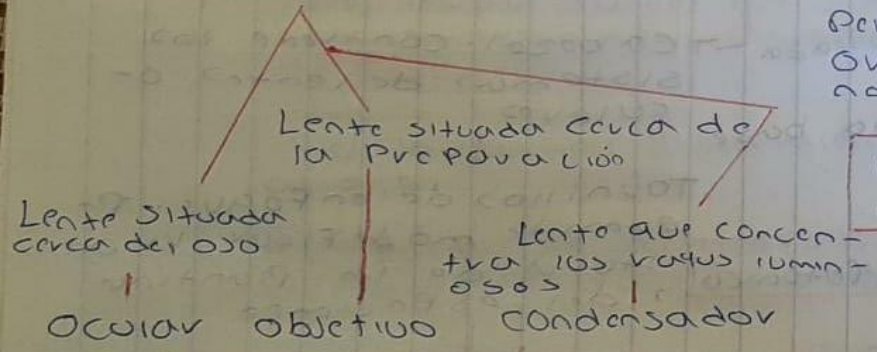 Lente situada cerca de
la preparación
Lente situada
cerca del ojo
Lente que concen-
tra los rayos lumin-
osos
Ocular
objetivo
condensador